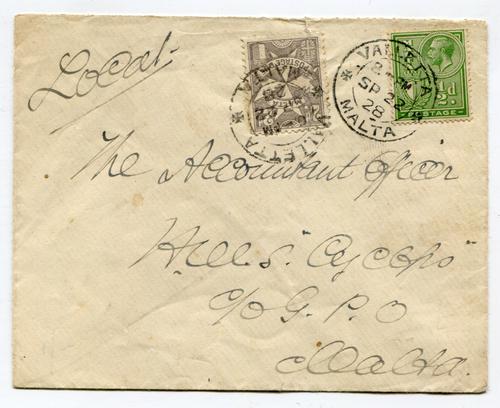 Local
VALLETTA
SP 22
28
MALTA
½d.
POSTAGE
VALLETTA
MALTA
POSTAGE
The Accountant Officer
H.M.S. "Cyclops"
c/o G. P. O
Malta.